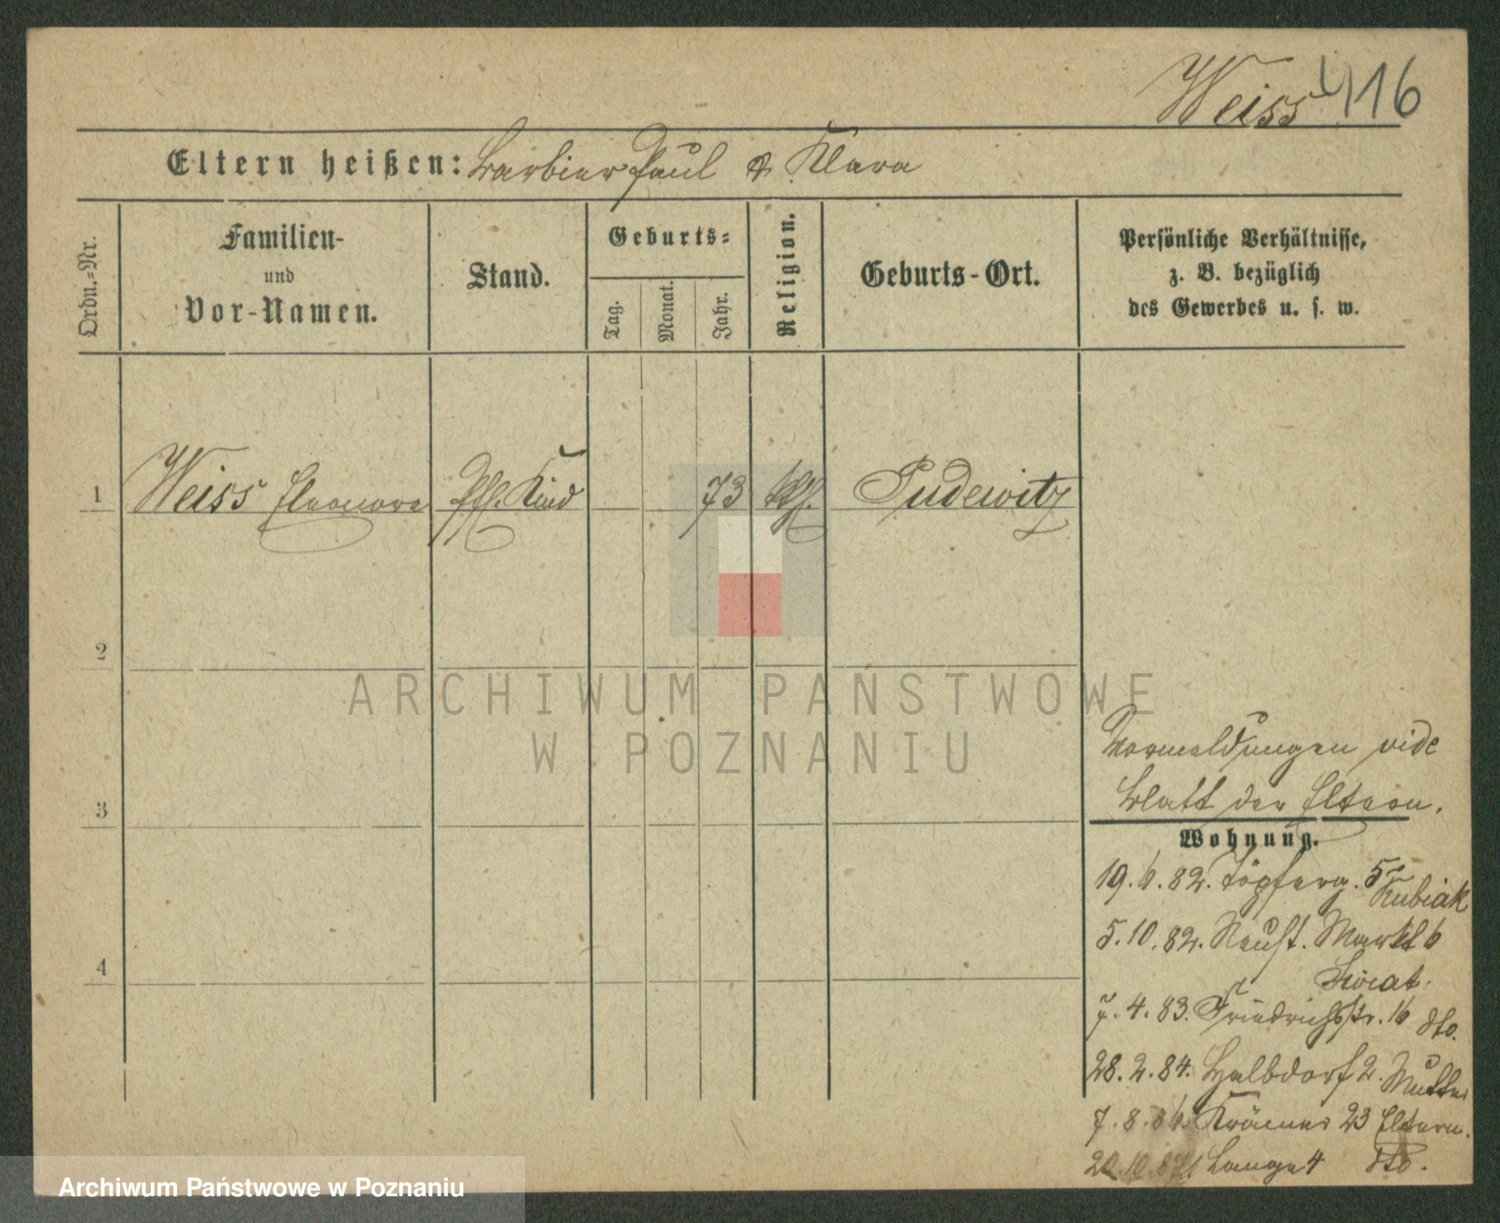 Weiss 416
Eltern heißen: Barbier Paul & Klara
Ordn.-Nr.
Familien-
und
Vor-Namen.
Stand.
Geburts-
Tag.
Monat.
Jahr.
Religion.
Geburts-Ort.
Persönliche Verhältnisse,
z. B. bezüglich
des Gewerbes u. s. w.
1 Weiss Eleonora Pfl. Kind 73 kth. Pudewitz
2
ARCHIWUM PAŃSTWOWE
W POZNANIU
Vormeldungen vide
3 Blatt der Eltern.
Wohnung.
19.6.82. Töpferg. 5 Kubiak
5.10.82. Neust. Markt 6
4
7.4.83. Friedrichstr. 16 dto.
28.2.84. Halbdorf 2. Mutter
7.8.86. Krämer 23 Eltern.
Lange 4 dto.
Archiwum Państwowe w Poznaniu